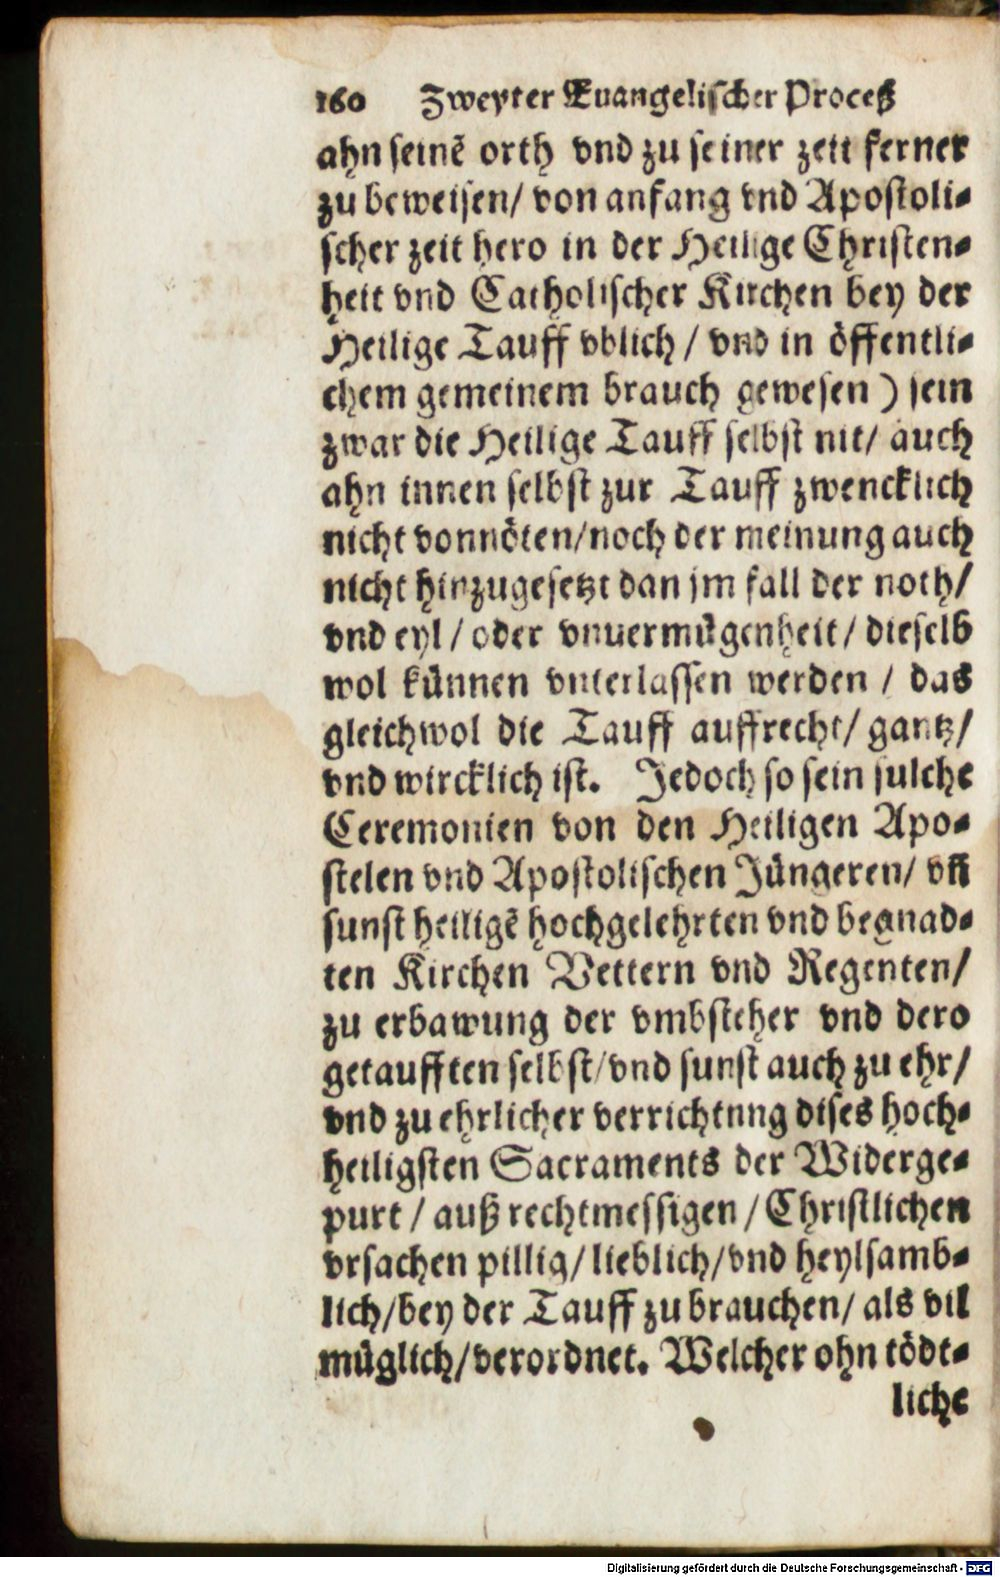 160 Zweyter Euangelischer Proceß
ahn seinē orth vnd zu seiner zeit ferner
zu beweisen/ von anfang vnd Apostoli-
scher zeit hero in der Heilige Christen-
heit vnd Catholischer Kirchen bey der
Heilige Tauff vblich / vnd in öffentli-
chem gemeinem brauch gewesen ) sein
zwar die Heilige Tauff selbst nit/ auch
ahn innen selbst zur Tauff zwencklich
nicht vonnöten/noch der meinung auch
nicht hinzugesetzt dan jm fall der noth/
vnd eyl / oder vnuermügenheit / dieselb
wol künnen vnterlassen werden / das
gleichwol die Tauff auffrecht/ gantz/
vnd wircklich ist. Jedoch so sein sulche
Ceremonien von den Heiligen Apo-
stelen vnd Apostolischen Jüngeren/ vñ
sunst heiligē hochgelehrten vnd begnad-
ten Kirchen Vettern vnd Regenten/
zu erbawung der vmbsteher vnd dero
getaufften selbst/vnd sunst auch zu ehr/
vnd zu ehrlicher verrichtnng dises hoch-
heiligsten Sacraments der Widerge-
purt / auß rechtmessigen / Christlichen
vrsachen pillig/ lieblich/vnd heylsamb-
lich/bey der Tauff zu brauchen/ als vil
müglich/verordnet. Welcher ohn tödt-
liche
Digitalisierung gefördert durch die Deutsche Forschungsgemeinschaft - DFG